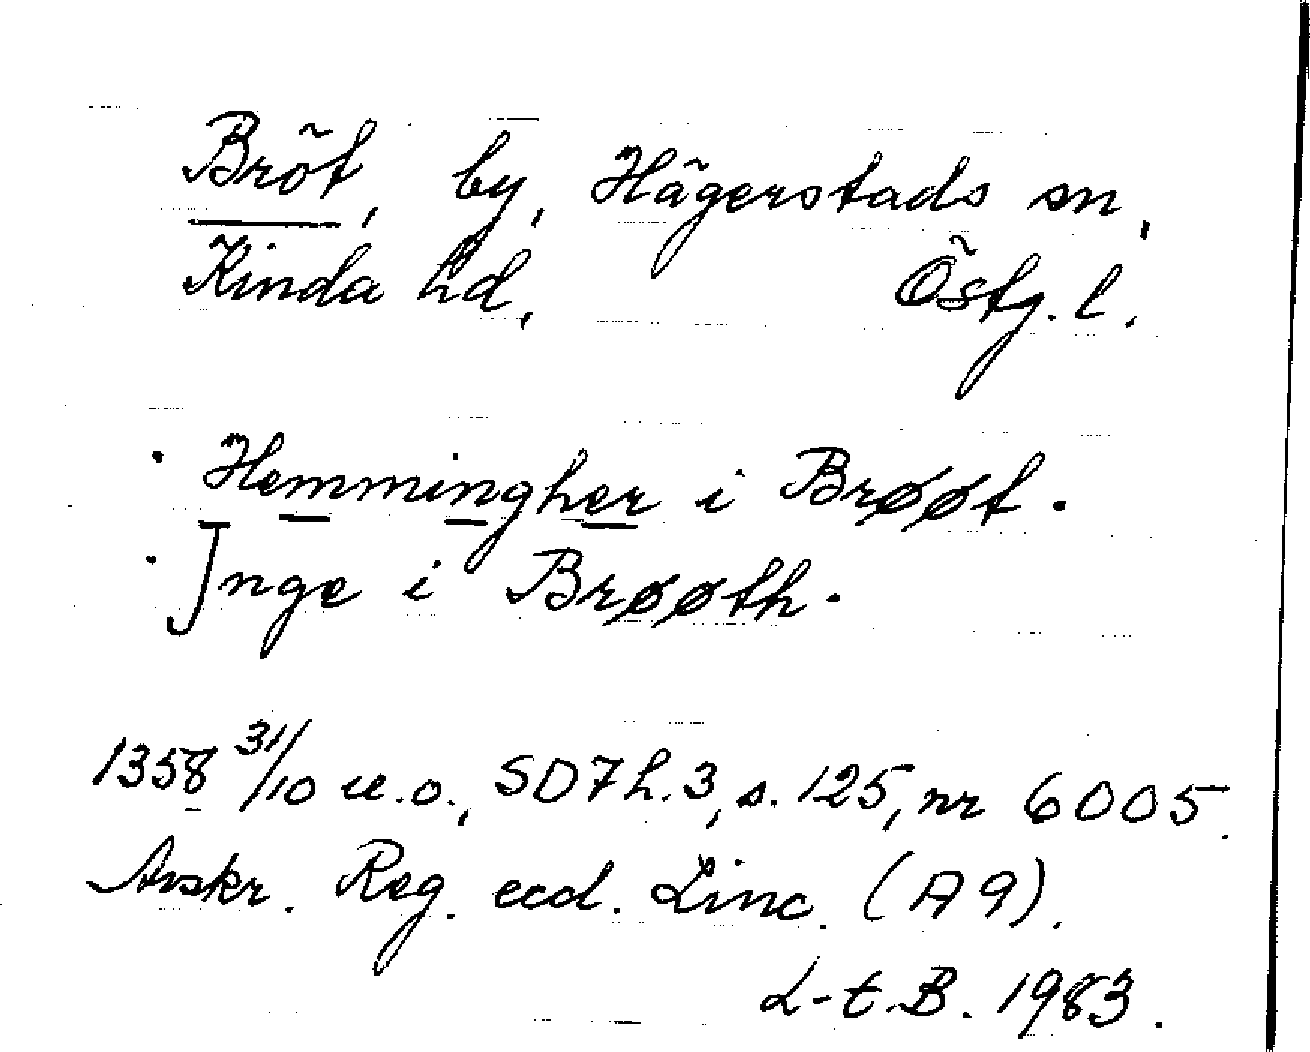 Bröt, by, Hägerstads sn,
Kinda hd, Östg. l.
Hemmingher i Brøøt.
Inge i Brøøth.
1358 31/10 u.o., SD7h.3, s. 125, nr 6005.
Avskr. Reg. eccl. Linc. (A9).
L-t.B. 1983.